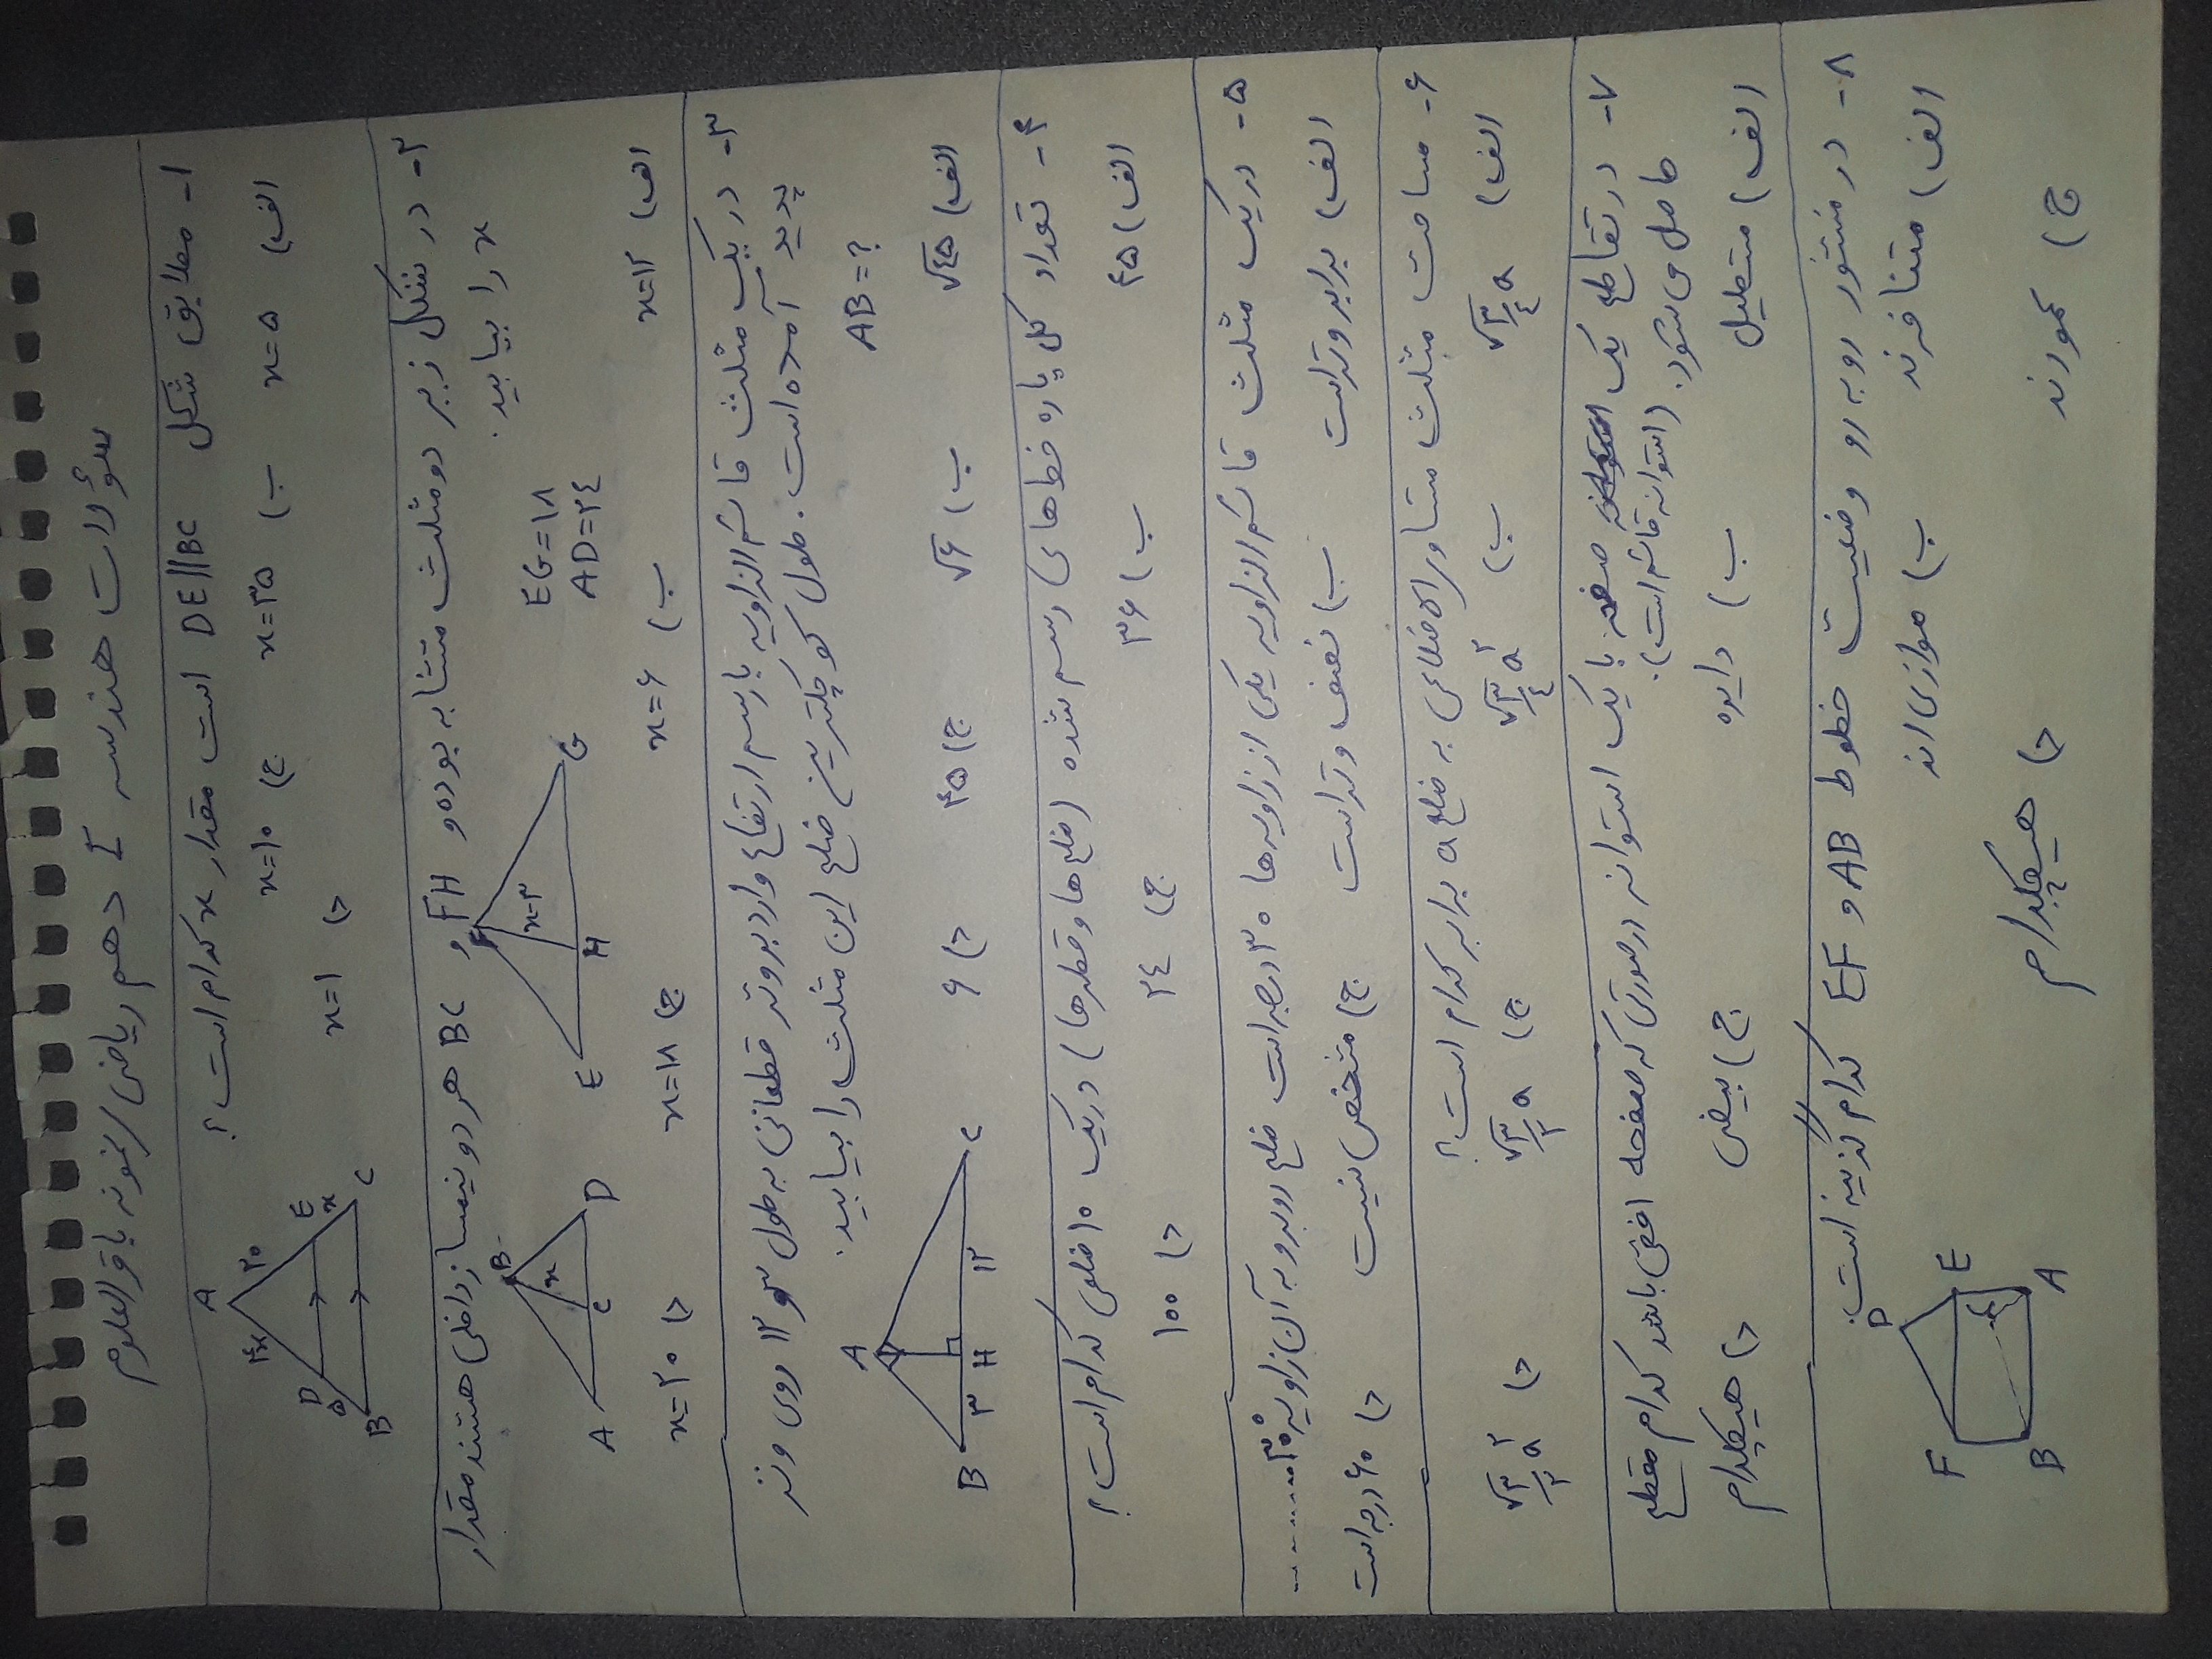 سؤالات هندسه ۱ دهم ریاضی/نمونه باقرالعلوم
۱- مطابق شکل DE||BC است مقدار x کدام است؟
الف) x=۵ ب) x=۳۵ ج) x=۱۰
د) x=۱
A
۴x ۲۰
D E
۵ x
B C
۲- در شکل زیر دو مثلث متشابه بوده و FH و BC هر دو نیمساز داخلی هستند مقدار
x را بیابید.
B x A C D
F x-۳ E H G
EG=۱۸
AD=۲٤
الف) x=۱۲ ب) x=۶ ج) x=۱۸ د) x=۲۰
۳- در یک مثلث قائم الزاویه با رسم ارتفاع وارد بر وتر قطعاتی به طول ۳ و ۱۲ روی وتر
پدید آمده است. طول کوچکترین ضلع این مثلث را بیابید.
AB=?
A
B ۳ H ۱۲ C
الف) √٤۵ ب) √۶ ج) ۴۵ د) ۶
۴- تعداد کل پاره خطهای رسم شده (ضلع ها و قطرها) در یک ۱۰ ضلعی کدام است؟
الف) ۴۵ ب) ۳۶ ج) ۲٤ د) ۱۰۰
۵- در یک مثلث قائم الزاویه یکی از زاویه ها ۳۰ درجه است ضلع روبرو به آن زاویه ۳۰° ..........
الف) برابر وتر است ب) نصف وتر است ج) مشخص نیست د) ۶۰ درجه است
۶- مساحت مثلث متساوی الاضلاعی به ضلع a برابر کدام است؟
الف) √۳/٤ a ب) √۳/٤ a² ج) √۳/۲ a د) √۳/۲ a²
۷- در تقاطع یک صفحه با یک استوانه در صورتی که صفحه افقی باشد کدام مقطع
حاصل می شود. (استوانه قائم است).
الف) مستطیل ب) دایره ج) بیضی د) هیچکدام
۸- در منشور روبه رو وضعیت خطوط AB و EF کدام گزینه است.
الف) متنافرند ب) موازی اند
ج) عمودند د) هیچکدام
D
F E
C
B A